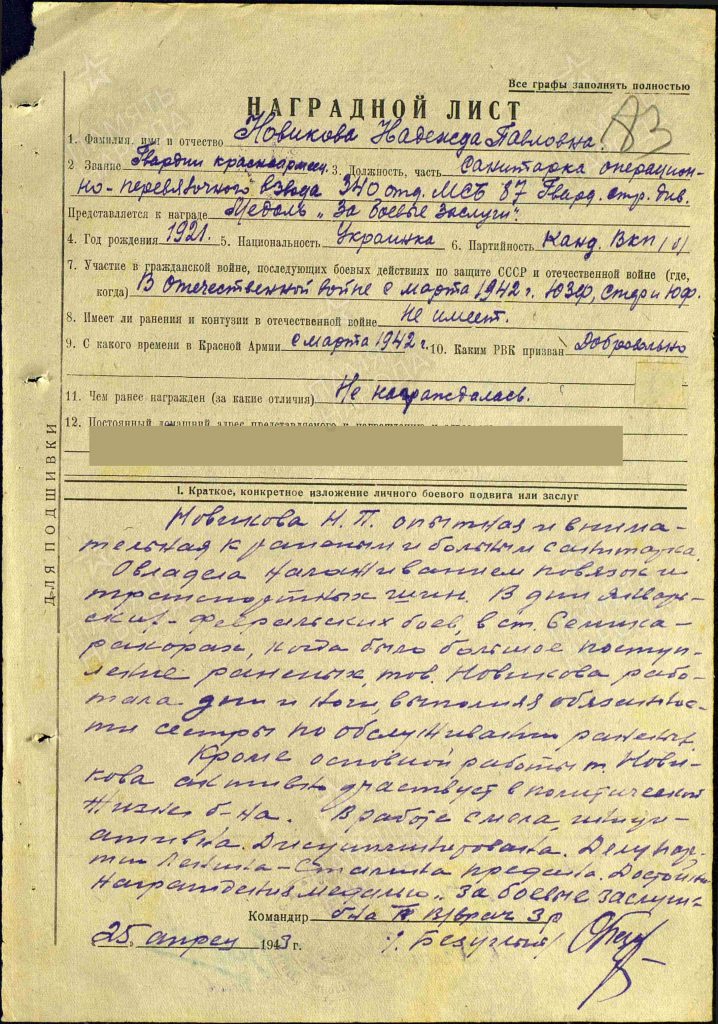 Все графы заполнять полностью
НАГРАДНОЙ ЛИСТ
83
1. Фамилия, имя и отчество Новикова Надежда Павловна.
2 Звание Гвардии красноармеец 3. Должность, часть санитарка операцион-
но-перевязочного взвода 340 отд. МСБ 87 Гвард. стр. див.
Представляется к награде Медаль „За боевые заслуги".
4. Год рождения 1921г. 5. Национальность Украинка 6. Партийность Канд. ВКП(б)
7. Участие в гражданской войне, последующих боевых действиях по защите СССР и отечественной войне (где,
когда) В Отечественной войне с марта 1942 г. ЮЗФ, Стар и ЮФ.
8. Имеет ли ранения и контузии в отечественной войне не имеет.
9. С какого времени в Красной Армии с марта 1942 г. 10. Каким РВК призван Добровольно
11. Чем ранее награжден (за какие отличия) Не награждалась.
12. Постоянный домашний адрес представляемого к награждению и
ДЛЯ ПОДШИВКИ
I. Краткое, конкретное изложение личного боевого подвига или заслуг
Новикова Н. П. опытная и внима-
тельная к раненым и больным санитарка.
Овладела налаживанием повязок и
транспортных шин. В дни январь-
ских - февральских боев, в ст.
когда было большое поступ-
ление раненых, тов. Новикова рабо-
тала дни и ночи, выполняя обязаннос-
ти сестры по обслуживанию раненых.
Кроме основной работы т. Нови-
кова активно участвует в политической
жизни б-на. В работе смела, иници-
ативна. Дисциплинирована. Делу пар-
тии Ленина-Сталина предана. Достойна
награждения медалью „За боевые заслуги
Командир б-на В/врач 3 р
25 апреля 1943 г. /Безуглый/